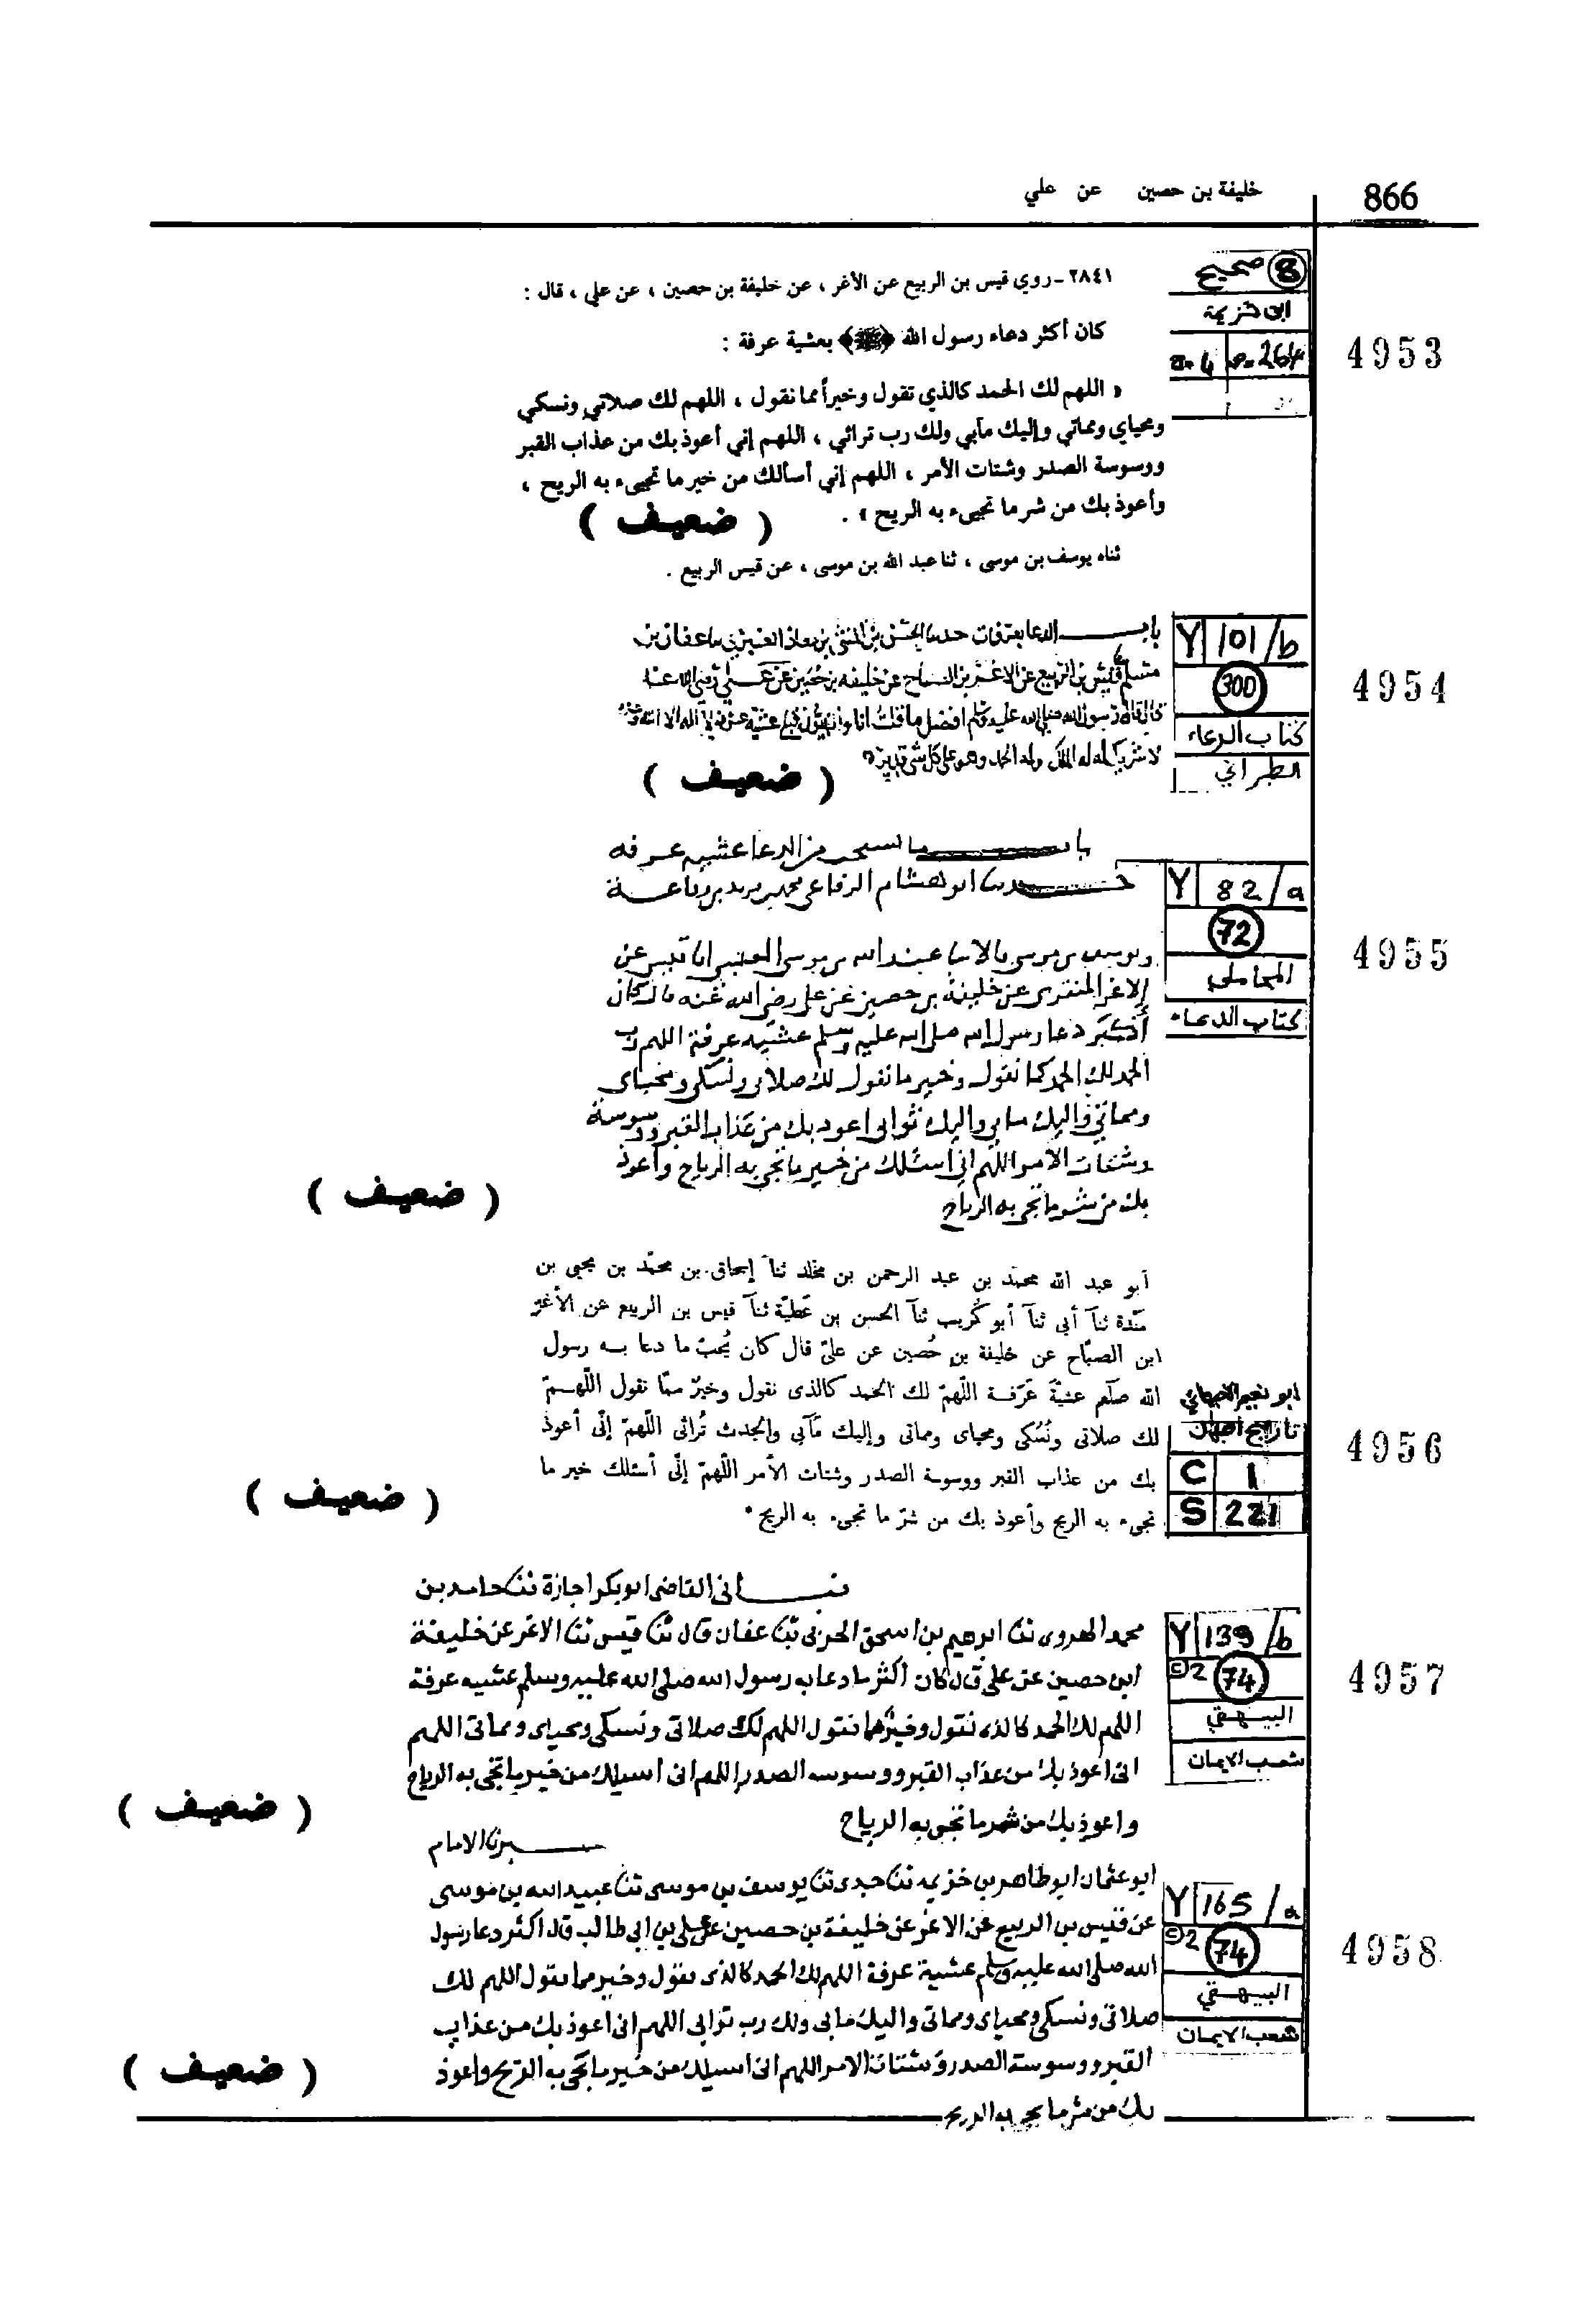 866
خليفة بن حصين عن علي
8 صحيح
ابن خزيمة
264
4953
٢٨٤١ - روي قيس بن الربيع عن الأغر ، عن خليفة بن حصين ، عن علي ، قال :
كان أكثر دعاء رسول الله ﴿ﷺ﴾ بعشية عرفة :
« اللهم لك الحمد كالذي تقول وخيراً مما نقول ، اللهم لك صلاتي ونسكي
ومحياي ومماتي وإليك مآبي ولك رب تراثي ، اللهم إني أعوذ بك من عذاب القبر
ووسوسة الصدر وشتات الأمر ، اللهم إني أسألك من خير ما تجيء به الريح ،
وأعوذ بك من شر ما تجيء به الريح » .
( ضعيف )
ثناه يوسف بن موسى ، ثنا عبد الله بن موسى ، عن قيس الربيع .
Y 101/b
300
كتاب الدعاء
الطبراني
4954
باب الدعا بعرفات حدثنا الحسن بن المثنى بن معاذ العنبري ثنا عفان بن
مسلم ثنا قيس بن الربيع عن الاغر بن الصباح عن خليفه بن حصين عن علي رضي الله عنه
قال قال رسول الله صلى الله عليه وسلم افضل ما قلت انا والنبيون قبلي عشية عرفة لا اله الا الله وحده
لا شريك له له الملك وله الحمد وهو على كل شي قدير
( ضعيف )
Y 82/a
72
المحاملي
كتاب الدعاء
4955
باب ما يستحب من الدعا عشيه عرفه
حدثنا ابو هشام الرفاعي محمد بن يزيد بن رفاعة
ويوسف بن موسى قالا ثنا عبيد الله بن موسى العبسي انا قيس عن
الاغر المنقري عن خليفة بن حصين عن علي رضي الله عنه قال كان
أكثر دعا رسول الله صلى الله عليه وسلم عشيه عرفة اللهم رب
الحمد لك الحمد كما نقول وخير ما نقول لك صلاتي ونسكي ومحياي
ومماتي واليك مابي واليك ثوابي اعوذ بك من عذاب القبر ووسوسة
وشتات الامر اللهم اني أسئلك من خير ما تجي به الرياح وأعوذ
بك من شر ما تجي به الرياح
( ضعيف )
أبو نعيم الأصبهاني
تاريخ أصبهان
C 1
S 221
4956
أبو عبد الله محمد بن عبد الرحمن بن مخلد ثنآ إسحاق بن محمّد بن يحيى بن
مَنْدة ثنآ أبي ثنآ أبو كُريب ثنآ الحسن بن عَطيّة ثنآ قيس بن الربيع عن الأغرّ
ابن الصبّاح عن خليفة بن حُصين عن عليّ قال كان يُحبّ ما دعا بـه رسول
الله صلّعم عشيّةَ عَرَفـة اللّهمّ لك الحمد كالذى نقول وخيرٌ ممّا نقول اللّهـمّ
لك صلاتى ونُسُكى ومحياى ومماتى وإليك مَآبى والجدث تُراثى اللّهمّ إنّى أعوذ
بك من عذاب القبر ووسوسة الصدر وشتات الأمر اللّهمّ إنّى أسئلك خير ما
تجىء به الريح وأعوذ بك من شرّ ما تجىء به الريح
( ضعيف )
Y 139/b
74
البيهقي
شعب الايمان
4957
القاضى ابو بكر اجازة ثنا حامد بن
محمد الهروى ثنا ابرهيم بن اسحق الحربى ثنا عفان قال ثنا قيس ثنا الاغر عن خليفة
ابن حصين عن على قال كان أكثر ما دعا به رسول الله صلى الله عليه وسلم عشيه عرفة
اللهم لك الحمد كالذى نقول وخيرا مما نقول اللهم لك صلاتى ونسكى ومحياى ومماتى اللهم
انى اعوذ بك من عذاب القبر ووسوسه الصدر اللهم انى اسيلك من خير ما تجى به الرياح
واعوذ بك من شر ما تجى به الرياح
( ضعيف )
Y 165/a
74
البيهقي
شعب الايمان
4958
الامام
ابو عثمان ابو طاهر بن خزيمه ثنا جدى ثنا يوسف بن موسى ثنا عبيد الله بن موسى
عن قيس بن الربيع عن الاغر عن خليفة بن حصين عن على بن ابى طالب قال اكثر دعا رسول
الله صلى الله عليه وسلم عشية عرفة اللهم لك الحمد كالذى نقول وخير مما نقول اللهم لك
صلاتى ونسكى ومحياى ومماتى واليك مابى ولك رب ترابى اللهم انى اعوذ بك من عذاب
القبر ووسوسة الصدر وشتات الامر اللهم انى اسيلك من خير ما تجى به الريح واعوذ
بك من شر ما تجى به الريح
( ضعيف )